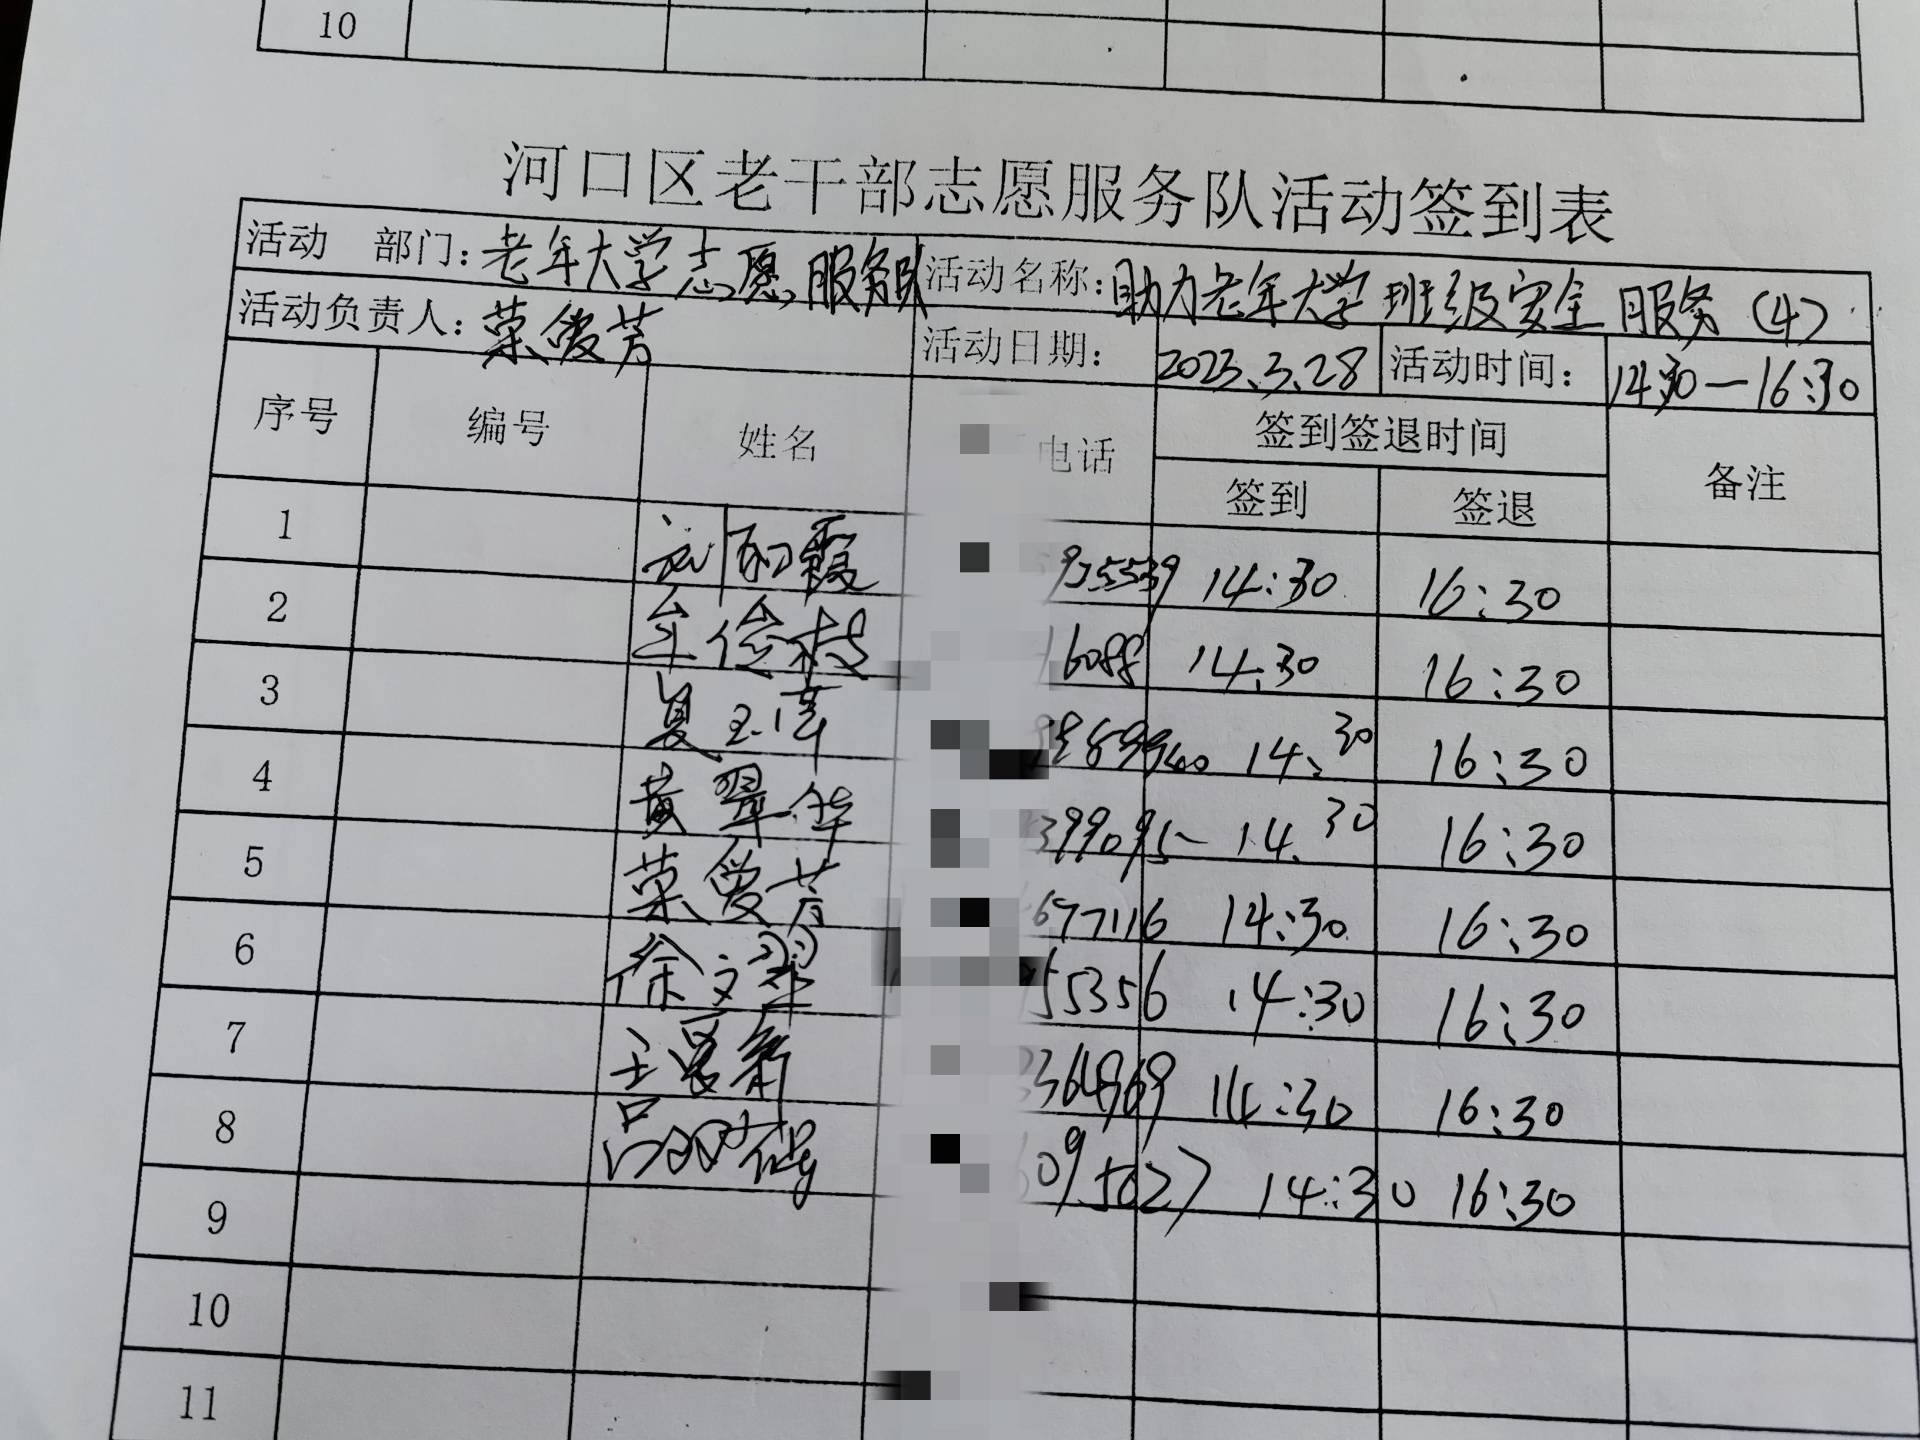 10
河口区老干部志愿服务队活动签到表
活动 部门：老年大学志愿服务队 活动名称：助力老年大学班级安全服务（4）
活动负责人：荣爱芳 活动日期： 2023.3.28 活动时间： 14:30—16:30
序号 编号 姓名 电话 签到签退时间 备注
签到 签退
1 霞 14:30 16:30
2 16088 14:30 16:30
3 14:30 16:30
4 黄翠华 399095 14:30 16:30
5 荣爱芳 677116 14:30 16:30
6 徐文翠 55356 14:30 16:30
7 王 364969 14:30 16:30
8 吕 14:30 16:30
9
10
11